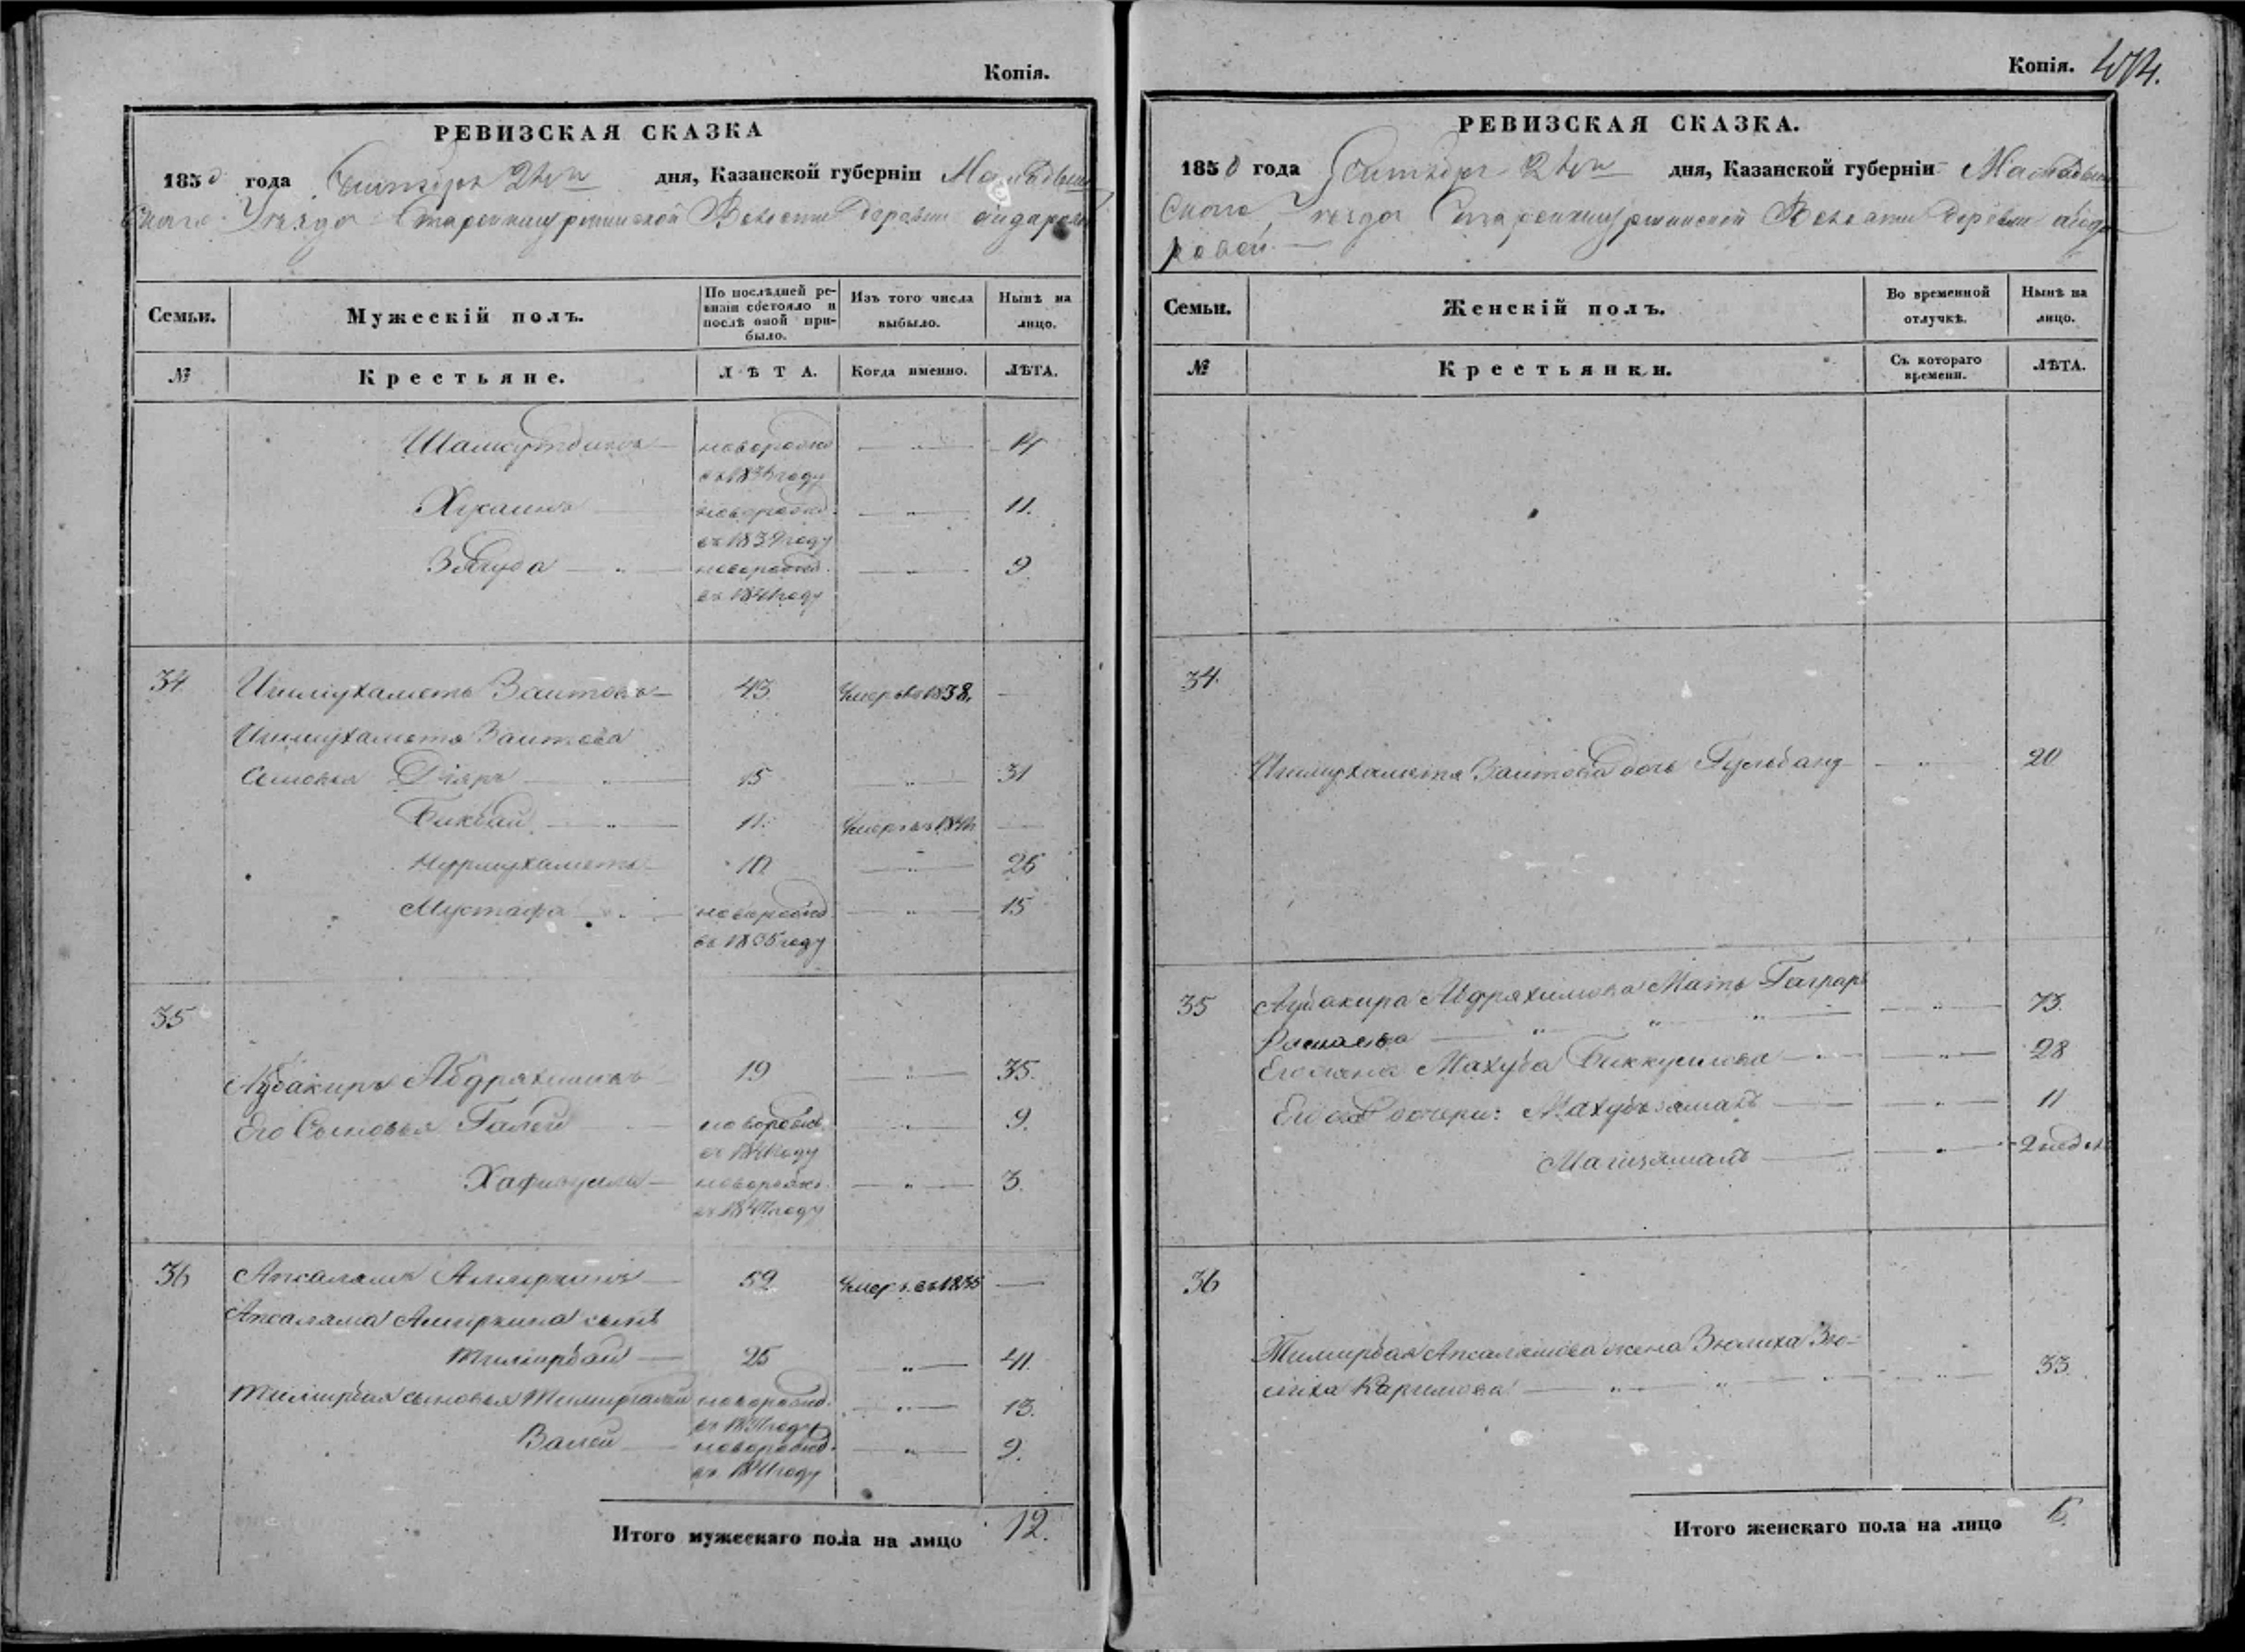 Копія.
РЕВИЗСКАЯ СКАЗКА
1850 года Сентября 24го дня, Казанской губерніи Мамадыш
скаго Уѣзда Волости деревни Айдаровой
Семьи. Мужескій полъ. По послѣдней ре-визіи состояло и послѣ оной при-было. Изъ того числа выбыло. Нынѣ на лицо.
№ Крестьяне. ЛѢТА. Когда именно. ЛѢТА.
Шамсутдинъ новорожд 14
въ году
Хусаинъ новорожд. 11.
въ 1839 году
новорожд. 9
въ 1841 году
34 Ишмухаметъ Заитовъ 43 Умеръ въ 1838. —
Ишмухаметя Заитова
Сыновья 15 31
Бикбай 11. Умеръ въ —
Нурмухаметъ 10 26
Мустафа новорожд. 15
въ 1835 году
35
Абубакиръ Абдряхимовъ 19 35.
Его Сыновья Галей новорожд. 9.
въ 1841 году
новорожд. 3.
въ 1847 году
36 Апсалямъ Амиркинъ 59 Умеръ въ 1835 —
Апсаляма Амиркина сынъ
Тимирбай 25 41.
Тимирбая сыновья новорожд. 13.
въ 1837 году
Валей новорожд. 9.
въ 1841 году
Итого мужескаго пола на лицо 12.
Копія. 474.
РЕВИЗСКАЯ СКАЗКА.
1850 года Сентября 24го дня, Казанской губерніи Мамадыш
скаго Уѣзда Волости деревни Айда
ровой
Семьи. Женскій полъ. Во временной отлучкѣ. Нынѣ на лицо.
№ Крестьянки. Съ котораго времени. ЛѢТА.
34.
Ишмухаметя Заитова дочь Гульбану 20
35 Абубакира Абдряхимова Мать 73.
Его жена Махуба Биккулова 28
Его дочери: Махубзямалъ 11
2 недѣл
36
Тимирбая Апсалямова жена Зюлиха Зю-
лиха Каримова 33.
Итого женскаго пола на лицо 6.